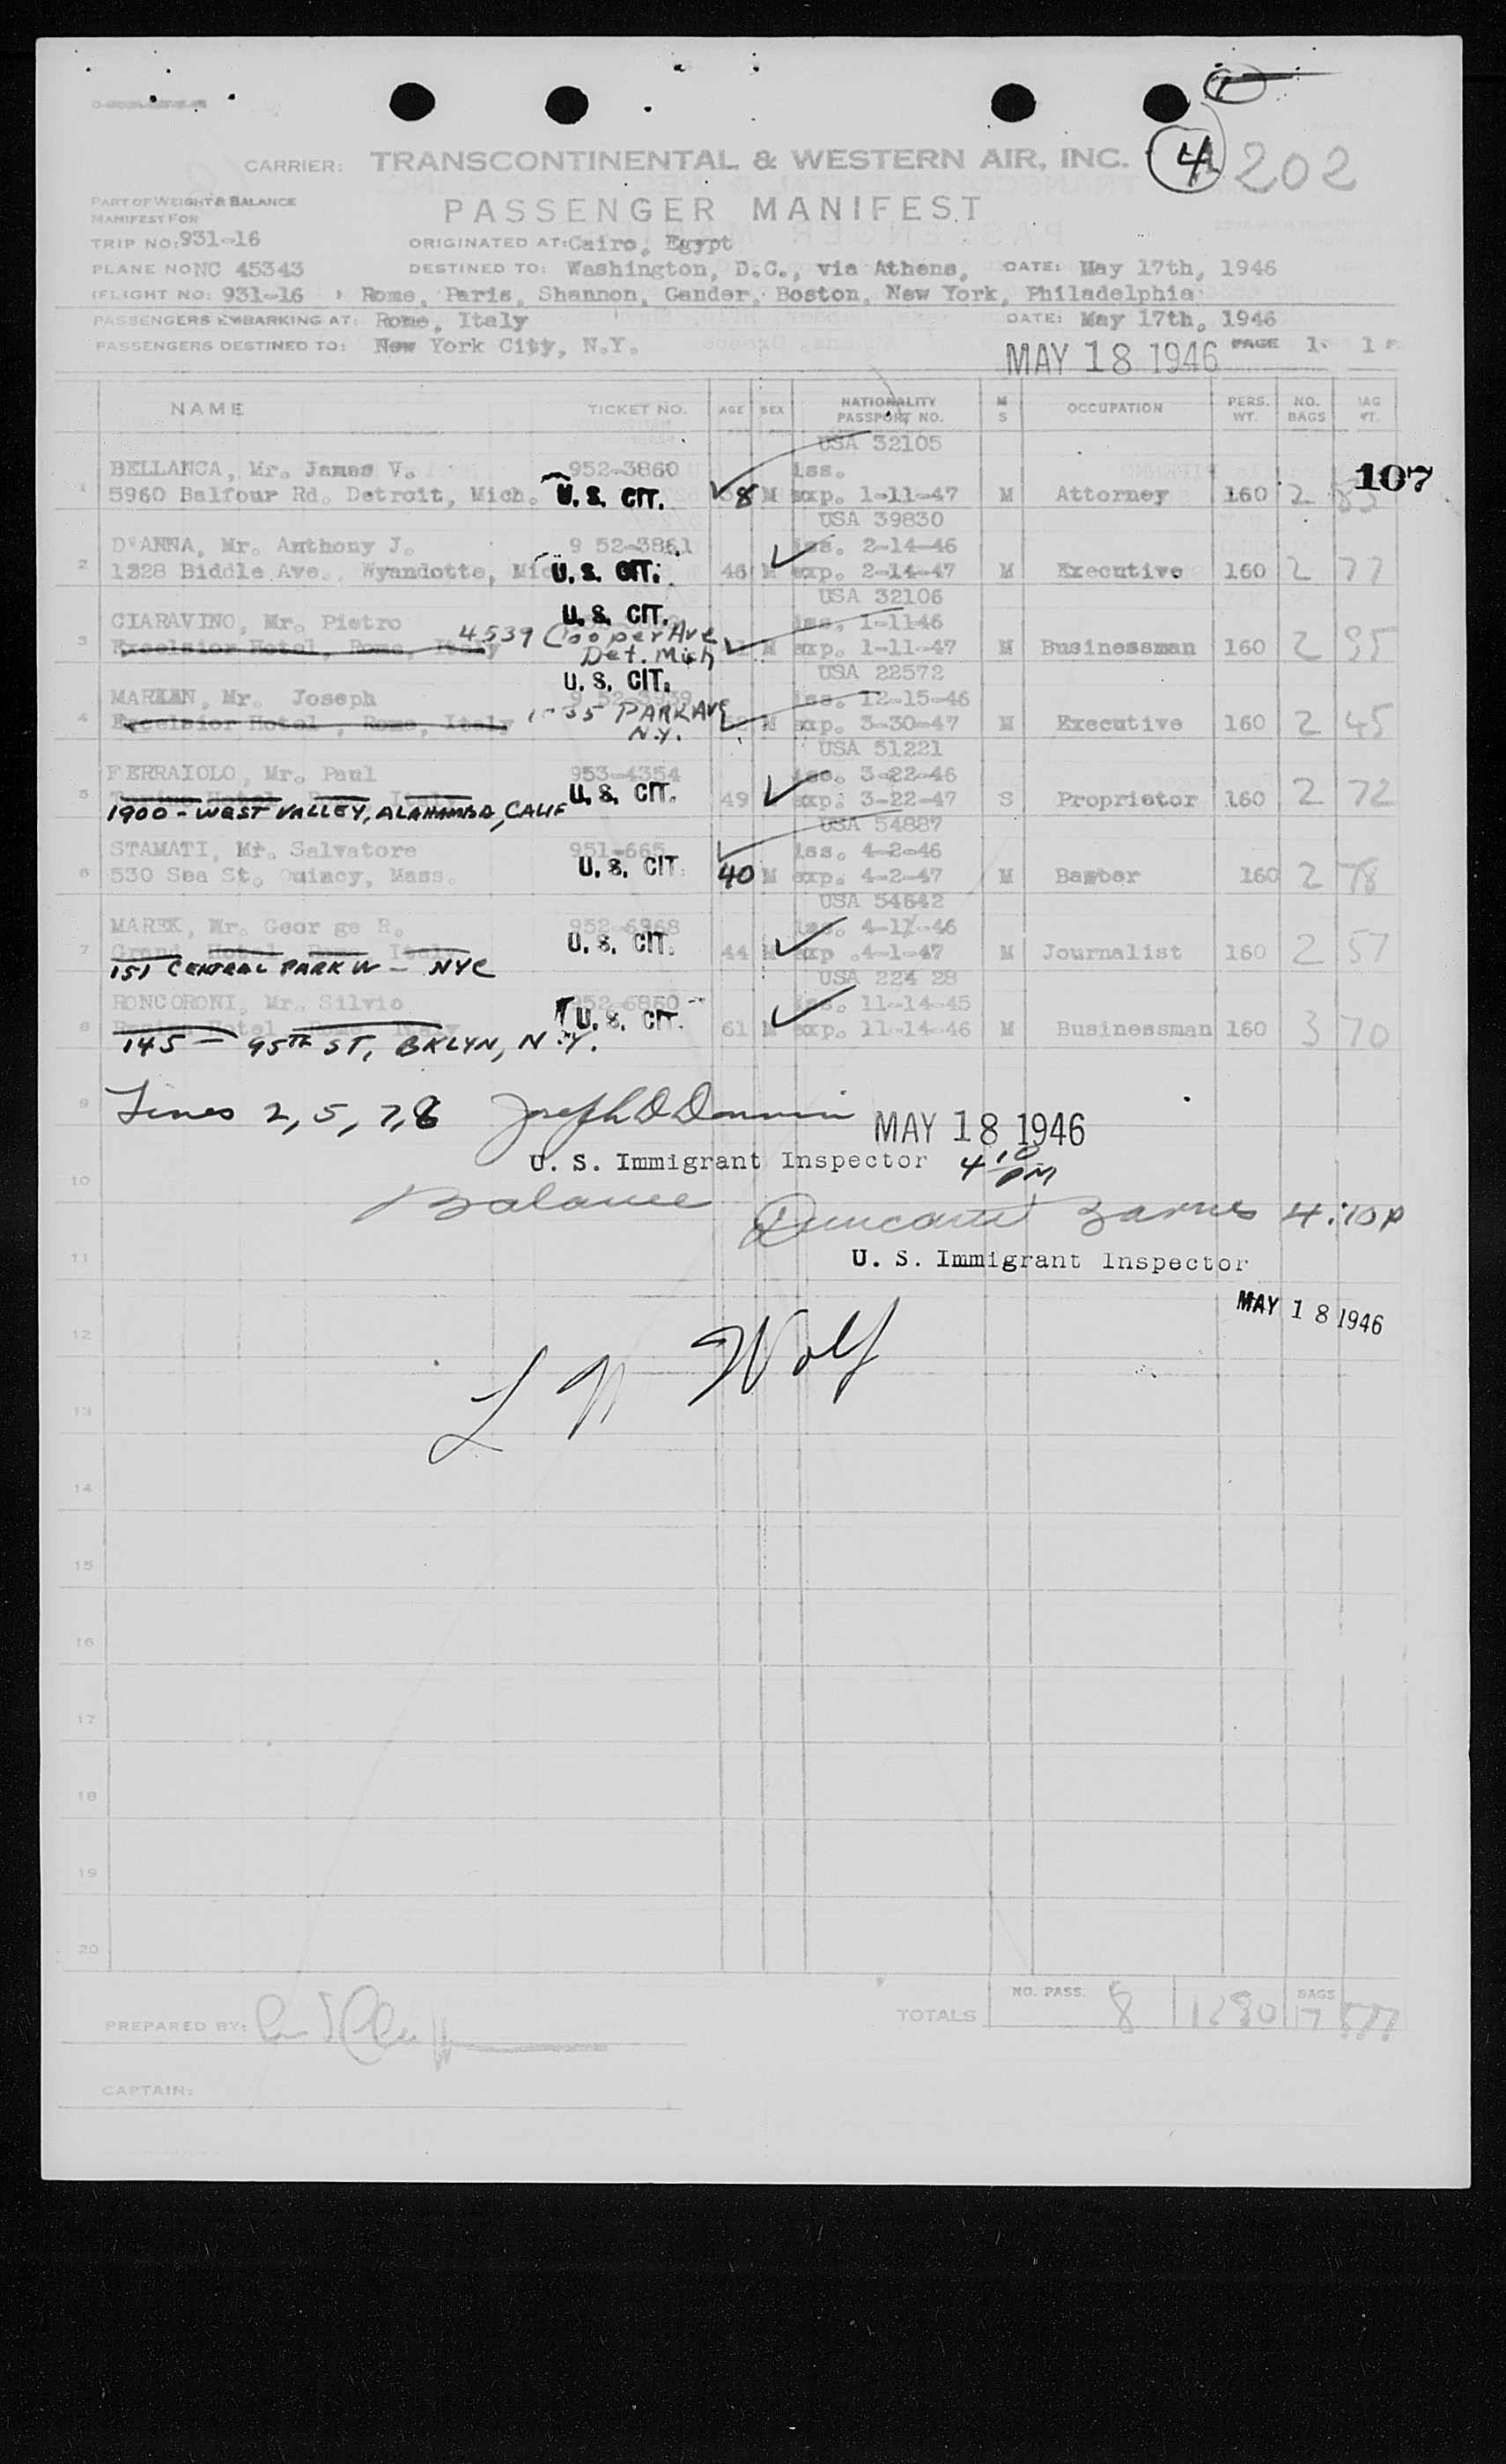 7
CARRIER: TRANSCONTINENTAL & WESTERN AIR, INC. 4 202
PART OF WEIGHT & BALANCE
MANIFEST FOR
PASSENGER MANIFEST
TRIP NO: 931-16 ORIGINATED AT: Cairo, Egypt
PLANE NO NC 45343 DESTINED TO: Washington, D.C., via Athens, DATE: May 17th, 1946
(FLIGHT NO: 931-16 ) Rome, Paris, Shannon, Gander, Boston, New York, Philadelphia
PASSENGERS EMBARKING AT: Rome, Italy DATE: May 17th, 1946
PASSENGERS DESTINED TO: New York City, N.Y. MAY 18 1946 PAGE 1. 1
NAME TICKET NO. AGE SEX NATIONALITY PASSPORT NO. M S OCCUPATION PERS. WT. NO. BAGS
USA 32105
BELLANCA, Mr. James V. 952-3860 iss. 107
1 5960 Balfour Rd. Detroit, Mich. U. S. CIT. 8 M exp. 1-11-47 M Attorney 160 2
USA 39830
D'ANNA, Mr. Anthony J. 9 52-3861 iss. 2-14-46
2 1328 Biddle Ave., Wyandotte, Mic U. S. CIT. 46 M exp. 2-14-47 M Executive 160 2 77
U. S. CIT. USA 32106
CIARAVINO, Mr. Pietro iss. 1-1146
3 Excelsior Hotel, Rome, Italy 4539 Cooper Ave M exp. 1-11-47 M Businessman 160 2 95
Det. Mich
U. S. CIT. USA 22572
MARKAN, Mr. Joseph 9 52-3939 iss. 12-15-46
4 Excelsior Hotel, Rome, Italy PARK AVE M exp. 3-30-47 M Executive 160 2 45
N.Y.
USA 51221
FERRAIOLO, Mr. Paul 953-4354 iss. 3-22-46
5 Hotel Rome Italy U. S. CIT. 49 exp. 3-22-47 S Proprietor 160 2 72
1900 - WEST VALLEY, ALAHAMBA, CALIF
USA 54887
STAMATI, Mr. Salvatore 951-665 iss. 4-2-46
6 530 Sea St. Quincy, Mass. U. S. CIT. 40 M exp. 4-2-47 M Bamber 160 2 78
USA 54642
MAREK, Mr. Geor ge R. 952-6868 iss. 4-11-46
7 Grand Hotel Rome Italy U. S. CIT. 44 M exp .4-1-47 M Journalist 160 2 57
151 CENTRAL PARK W - NYC
USA 224 28
RONCORONI, Mr. Silvio 952-6860 iss. 11-14-45
8 Regina Hotel Rome Italy U. S. CIT. 61 M exp. 11-14-46 M Businessman 160 3 70
145 - 95TH ST, BKLYN, N.Y.
9 Lines 2, 5, 7, 8 Joseph D MAY 18 1946
U. S. Immigrant Inspector 4 10 PM
10 Balance
Barnes 4:10 P
11 U. S. Immigrant Inspector
MAY 18 1946
12
L N Wolf
13
14
15
16
17
18
19
20
TOTALS NO. PASS. 8 1280 BAGS 17
PREPARED BY:
CAPTAIN: